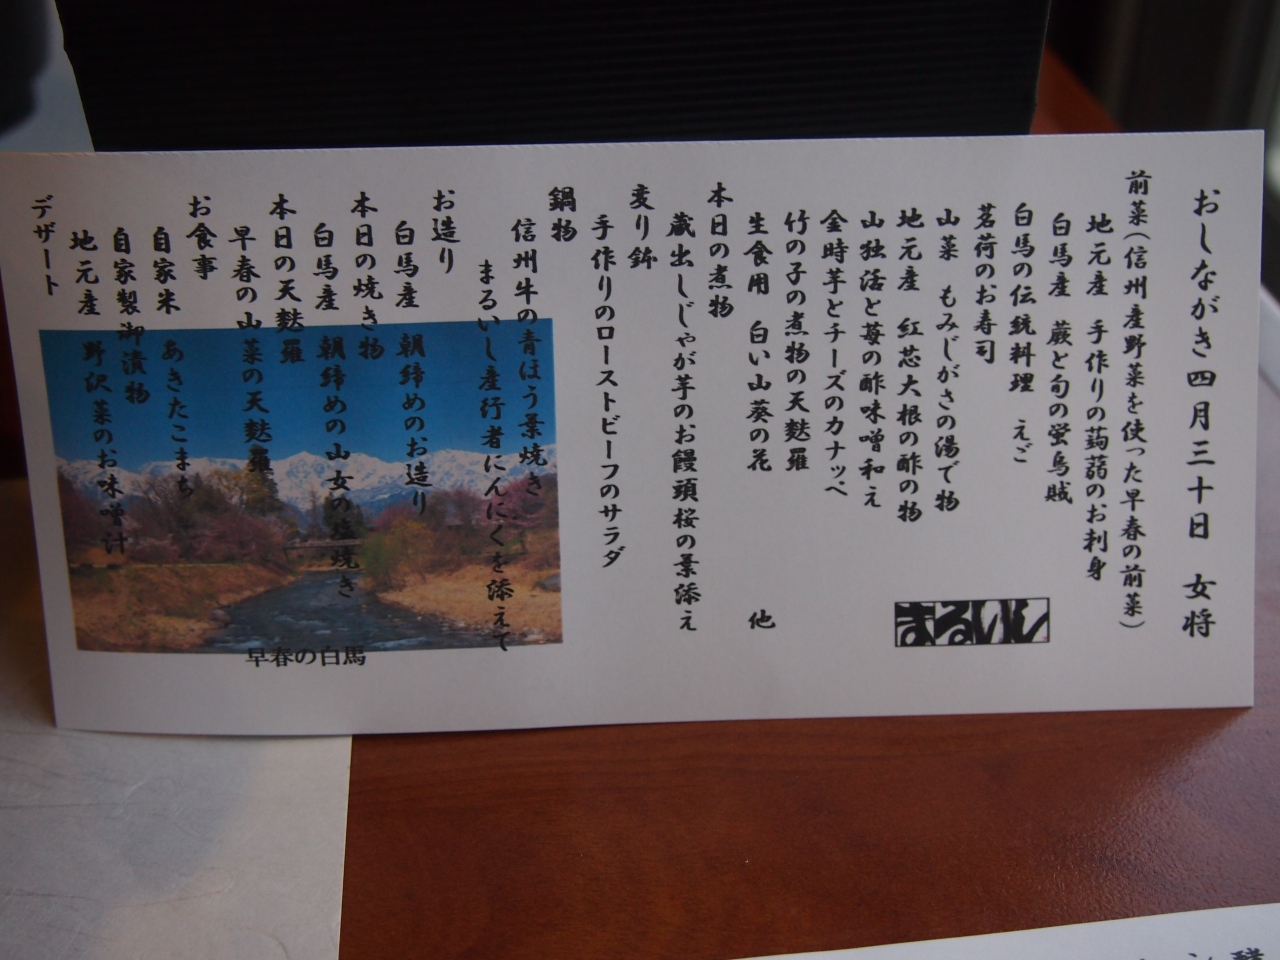 おしながき四月三十日　女将
前菜（信州産野菜を使った早春の前菜）
地元産　手作りの蒟蒻のお刺身
白馬産　蕨と旬の蛍烏賊
白馬の伝統料理　えご
茗荷のお寿司
山菜　もみじがさの湯で物
地元産　紅芯大根の酢の物
山独活と苺の酢味噌和え
金時芋とチーズのカナッペ
竹の子の煮物の天麩羅
生食用　白い山葵の花　他
本日の煮物
蔵出しじゃが芋のお饅頭桜の葉添え
変り鉢
手作りのローストビーフのサラダ
鍋物
信州牛の青ほう葉焼き
まるいし産行者にんにくを添えて
お造り
白馬産　朝締めのお造り
本日の焼き物
白馬産　朝締めの山女の塩焼き
本日の天麩羅
早春の山菜の天麩羅
お食事
自家米　あきたこまち
自家製御漬物
地元産　野沢菜のお味噌汁
デザート
まるいし
早春の白馬